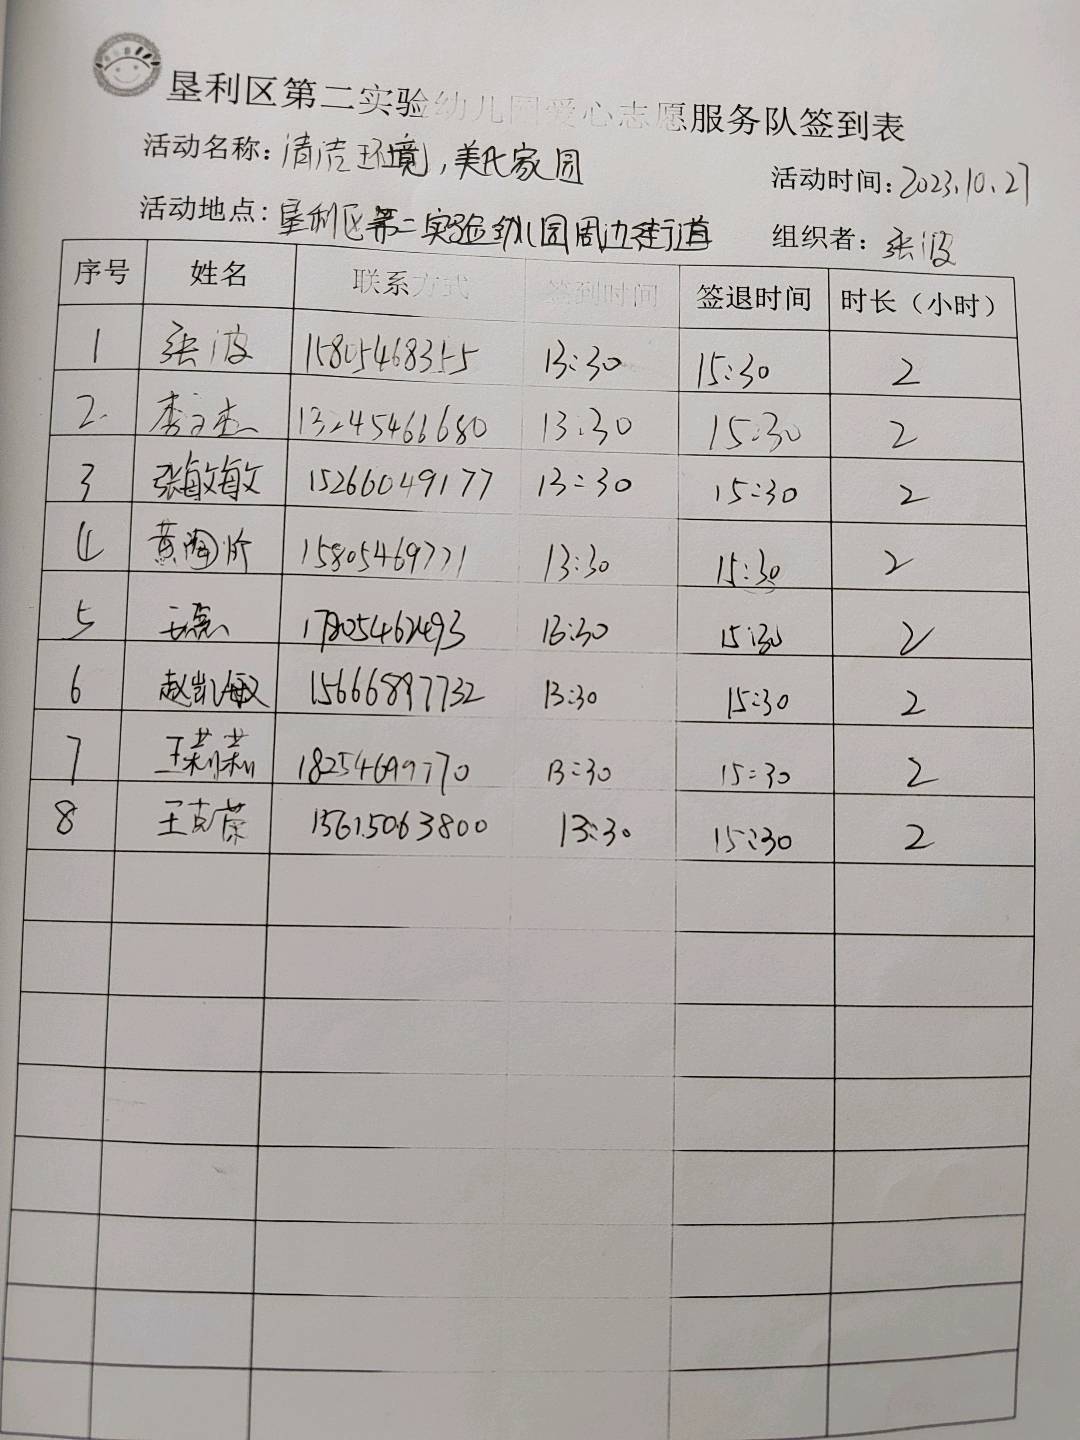 垦利区第二实验幼儿园爱心志愿服务队签到表
活动名称:清洁环境,美化家园
活动时间:2023.10.27
活动地点:垦利区第二实验幼儿园周边街道
组织者:张波
序号 姓名 联系方式 签到时间 签退时间 时长(小时)
1 张波 15805468355 13:30 15:30 2
2 李文杰 13245461680 13:30 15:30 2
3 张敏敏 15266049177 13:30 15:30 2
4 15805469771 13:30 15:30 2
5 17805462493 13:30 15:30 2
6 赵凯敏 15666897732 13:30 15:30 2
7 王莉莉 18254699770 13:30 15:30 2
8 王克荣 15615063800 13:30 15:30 2